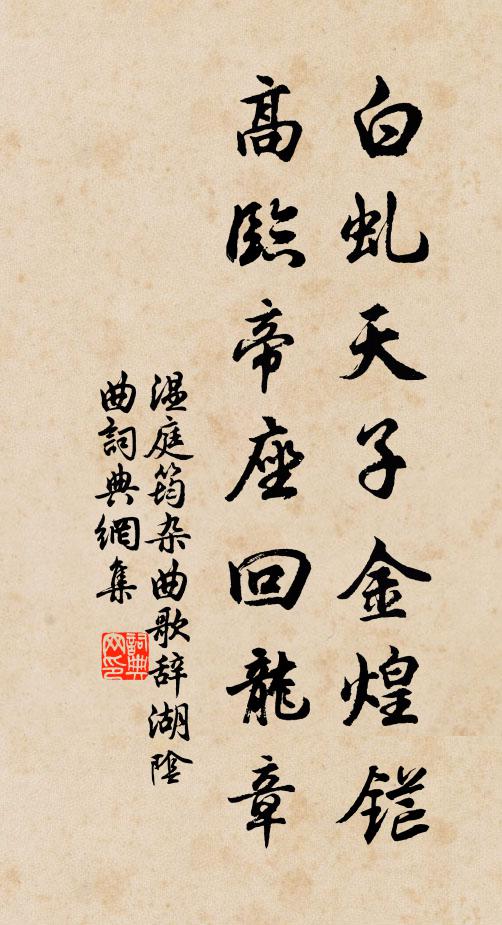 白虬天子金煌铓
高臨帝座回龍章
温庭筠杂曲歌辞湖陰
曲詞典網集
詞典網印